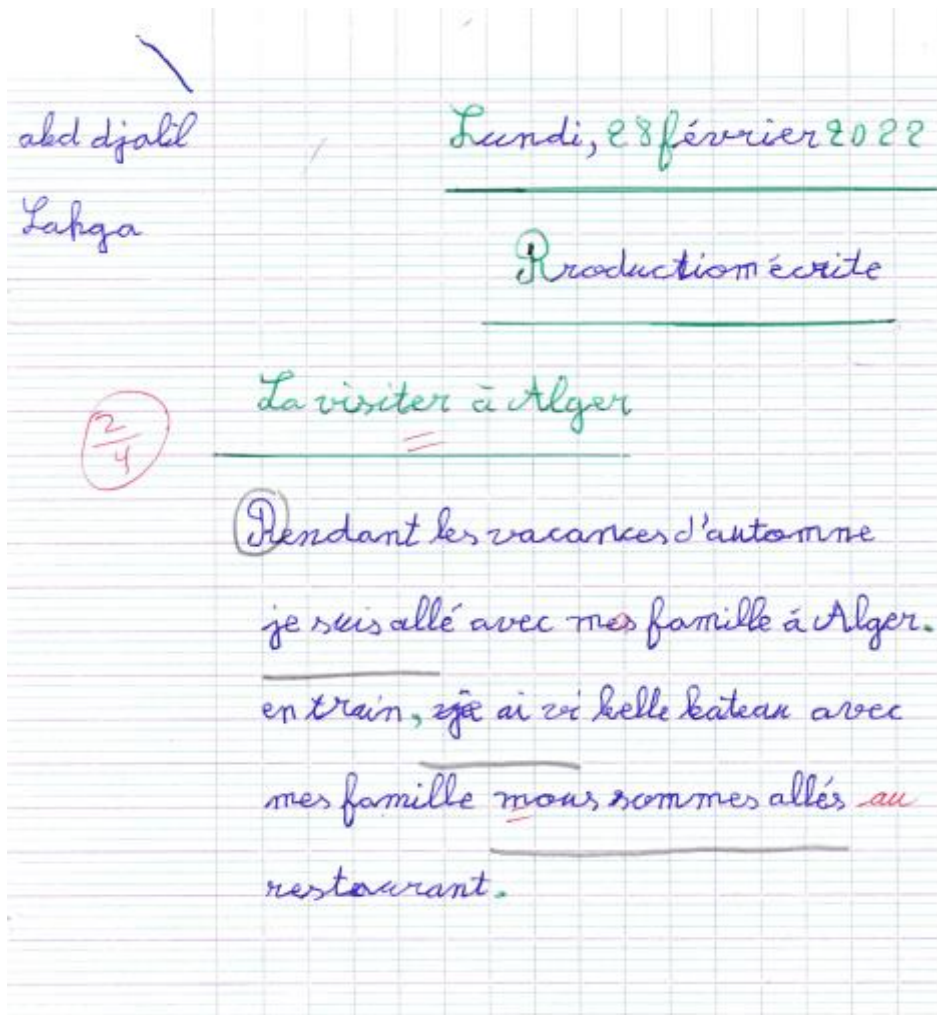 abd djalil
Lundi, 28 février 2022
Lahga
Production écrite
La visiter à Alger
2/4
Pendant les vacances d'automne
je suis allé avec mes famille à Alger.
en train, je ai vi belle bateau avec
mes famille mous sommes allés au
restaurant.